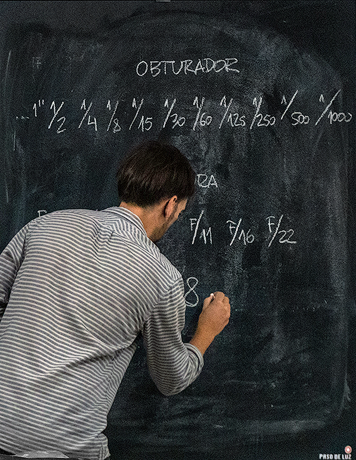 OBTURADOR
... 1" 1/2 1/4 1/8 1/15 1/30 1/60 1/125 1/250 1/500 1/1000
RA
F/11 F/16 F/22
8
PASO DE LUZ